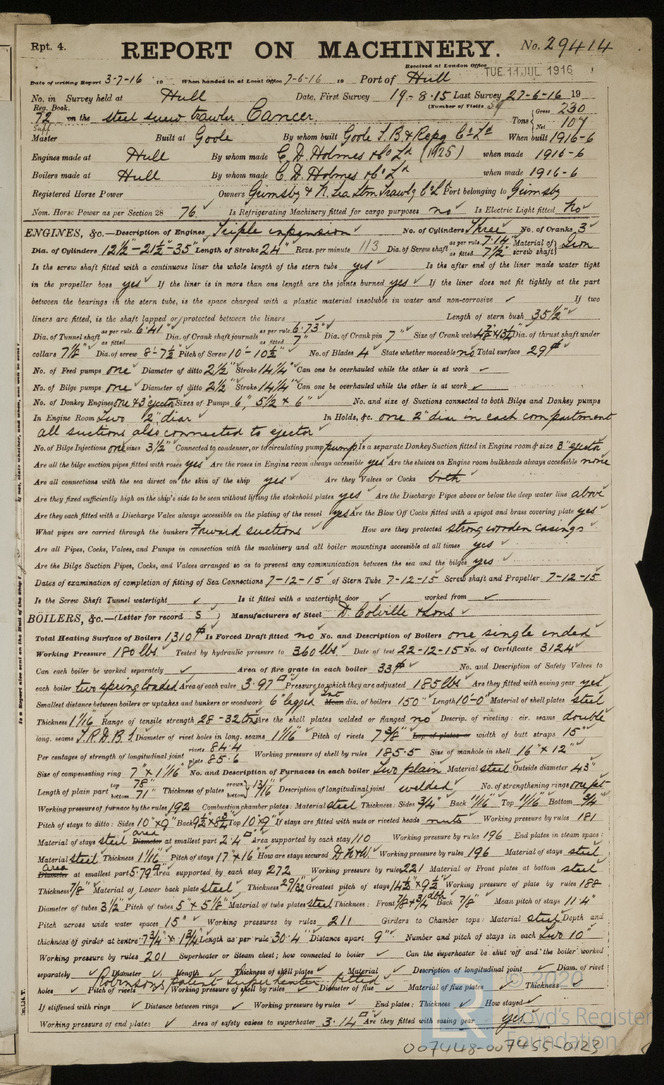 Rpt. 4. REPORT ON MACHINERY. No. 29414
Received at London Office TUE. 11 JUL 1916
Date of writing Report 3-7-16 19 When handed in at Local Office 7-6-16 19 Port of Hull
No. in Survey held at Hull Date, First Survey 19-8-15 Last Survey 27-6-16 19
Reg. Book. (Number of Visits 39
72 on the steel screw trawler Cancer Tons Gross 230 Net 107
Master Built at Goole By whom built Goole S.B & Repg Co Ld When built 1916-6
Engines made at Hull By whom made C. D. Holmes & Co Ld (1925) when made 1916-6
Boilers made at Hull By whom made C. D. Holmes & Co Ld when made 1916-6
Registered Horse Power Owners Grimsby & N. Sea Stm Trawlg Co Ld Port belonging to Grimsby
Nom. Horse Power as per Section 28 76. Is Refrigerating Machinery fitted for cargo purposes no Is Electric Light fitted No
ENGINES, &c.—Description of Engines Triple expansion No. of Cylinders Three No. of Cranks 3
Dia. of Cylinders 12½"-21½"-35" Length of Stroke 24" Revs. per minute 113 Dia. of Screw shaft as per rule 7.14 as fitted 7½" Material of screw shaft Iron
Is the screw shaft fitted with a continuous liner the whole length of the stern tube yes Is the after end of the liner made water tight
in the propeller boss yes If the liner is in more than one length are the joints burned yes If the liner does not fit tightly at the part
between the bearings in the stern tube, is the space charged with a plastic material insoluble in water and non-corrosive If two
liners are fitted, is the shaft lapped or protected between the liners Length of stern bush 35½"
Dia. of Tunnel shaft as per rule 6.41" as fitted Dia. of Crank shaft journals as per rule 6.73" as fitted 7" Dia. of Crank pin 7" Size of Crank webs Dia. of thrust shaft under
collars 7½" Dia. of screw 8'-7½" Pitch of Screw 10'-10½" No. of Blades 4 State whether moveable no Total surface 29
No. of Feed pumps one Diameter of ditto 2½" Stroke 14¼" Can one be overhauled while the other is at work
No. of Bilge pumps one Diameter of ditto 2½" Stroke 14¼" Can one be overhauled while the other is at work
No. of Donkey Engines one & 3" ejector Sizes of Pumps 6", 5½ × 6" No. and size of Suctions connected to both Bilge and Donkey pumps
In Engine Room Two 2" diar In Holds, &c. one 2" diar in each compartment
all suctions also connected to ejector
No. of Bilge Injections one sizes 3½" Connected to condenser, or to circulating pump pump Is a separate Donkey Suction fitted in Engine room & size 3" ejector
Are all the bilge suction pipes fitted with roses yes Are the roses in Engine room always accessible yes Are the sluices on Engine room bulkheads always accessible none
Are all connections with the sea direct on the skin of the ship yes Are they Valves or Cocks both
Are they fixed sufficiently high on the ship's side to be seen without lifting the stokehold plates yes Are the Discharge Pipes above or below the deep water line above
Are they each fitted with a Discharge Valve always accessible on the plating of the vessel yes Are the Blow Off Cocks fitted with a spigot and brass covering plate yes
What pipes are carried through the bunkers Forward suctions How are they protected strong wooden casings
Are all Pipes, Cocks, Valves, and Pumps in connection with the machinery and all boiler mountings accessible at all times yes
Are the Bilge Suction Pipes, Cocks, and Valves arranged so as to prevent any communication between the sea and the bilges yes
Dates of examination of completion of fitting of Sea Connections 7-12-15 of Stern Tube 7-12-15 Screw shaft and Propeller 7-12-15
Is the Screw Shaft Tunnel watertight Is it fitted with a watertight door worked from
BOILERS, &c.—(Letter for record S) Manufacturers of Steel D. Colville & Sons
Total Heating Surface of Boilers 1310 Is Forced Draft fitted no No. and Description of Boilers one single ended
Working Pressure 180 lbs Tested by hydraulic pressure to 360 lbs Date of test 22-12-15 No. of Certificate 3124
Can each boiler be worked separately Area of fire grate in each boiler 33 No. and Description of Safety Valves to
each boiler two spring loaded Area of each valve 3.97 Pressure to which they are adjusted 185 lbs Are they fitted with easing gear yes
Smallest distance between boilers or uptakes and bunkers or woodwork 6" lagged Int dia. of boilers 150" Length 10'-0" Material of shell plates steel
Thickness 1 1/16" Range of tensile strength 28-32 tns Are the shell plates welded or flanged no Descrip. of riveting: cir. seams double
long. seams T.R.D.B.S. Diameter of rivet holes in long. seams 1 1/16" Pitch of rivets 7 3/8" width of butt straps 15"
Per centages of strength of longitudinal joint rivets 84.4 plate 85.6 Working pressure of shell by rules 185.5 Size of manhole in shell 16" × 12"
Size of compensating ring 7" × 1 1/16" No. and Description of Furnaces in each boiler Two plain Material steel Outside diameter 43"
Length of plain part top 78" bottom 71" Thickness of plates crown bottom 13/16" Description of longitudinal joint welded No. of strengthening rings
Working pressure of furnace by the rules 192 Combustion chamber plates: Material steel Thickness: Sides ¾" Back 11/16" Top 11/16" Bottom ¾"
Pitch of stays to ditto: Sides 10" × 9" Back Top 10" × 9" If stays are fitted with nuts or riveted heads nuts Working pressure by rules 181
Material of stays steel area at smallest part 2.4 Area supported by each stay 110 Working pressure by rules 196 End plates in steam space:
Material steel Thickness 1 1/16" Pitch of stays 17" × 16" How are stays secured D.N.&W. Working pressure by rules 196 Material of stays steel
Area at smallest part 5.79 Area supported by each stay 272 Working pressure by rules 221 Material of Front plates at bottom steel
Thickness 7/8" Material of Lower back plate steel Thickness 29/32" Greatest pitch of stays 14½" × 9½" Working pressure of plate by rules 188
Diameter of tubes 3½" Pitch of tubes 5" × 5 1/8" Material of tube plates steel Thickness: Front Back 7/8" Mean pitch of stays 11.4"
Pitch across wide water spaces 15" Working pressures by rules 211 Girders to Chamber tops: Material steel Depth and
thickness of girder at centre 7¾" × 1¾" Length as per rule 30.4" Distance apart 9" Number and pitch of stays in each Two 10"
Working pressure by rules 201 Superheater or Steam chest; how connected to boiler Can the superheater be shut off and the boiler worked
separately Diameter Length Thickness of shell plates Material Description of longitudinal joint Diam. of rivet
Robinsons patent superheater fitted
holes Pitch of rivets Working pressure of shell by rules Diameter of flue Material of flue plates Thickness
If stiffened with rings Distance between rings Working pressure by rules End plates: Thickness How stayed
Working pressure of end plates Area of safety valves to superheater 3.14 Are they fitted with easing gear yes
Lloyd's Register
Foundation
007448-007455-0123